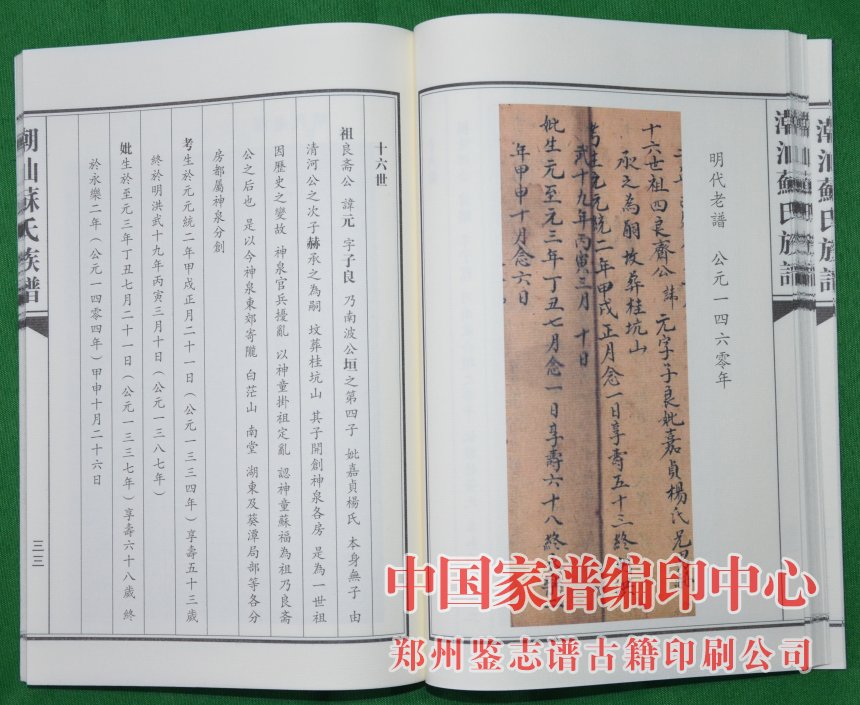 潮汕蘇氏族譜
明代老譜 公元一四六零年
十六世祖四良齋公 諱 元字子良妣嘉貞楊氏
承之為嗣坟葬桂坑山
考生元元統二年甲戌正月念一日享壽五十三終
武十九年丙寅三月 十日
妣生元至元三年丁丑七月念一日享壽六十八終
年甲申十月念六日
十六世
祖良斋公 諱元 字子良 乃南波公垣之第四子 妣嘉貞楊氏 本身無子 由
清河公之次子赫承之為嗣 坟葬桂坑山 其子開創神泉各房 是為一世祖
因歷史之變故 神泉官兵擾亂 以神童掛祖定亂 認神童蘇福為祖乃良斋
公之后也 是以今神泉東郊寄隴 白茫山 南堂 湖東及葵潭局部等各分
房都屬神泉分創
考生於元元統二年甲戌正月二十一日（公元一三三四年）享壽五十三歲
終於明洪武十九年丙寅三月十日（公元一三八七年）
妣生於至元三年丁丑七月二十一日（公元一三三七年）享壽六十八歲 終
於永樂二年（公元一四零四年）甲申十月二十六日
潮汕蘇氏族譜
三三
中国家谱编印中心
郑州鉴志谱古籍印刷公司